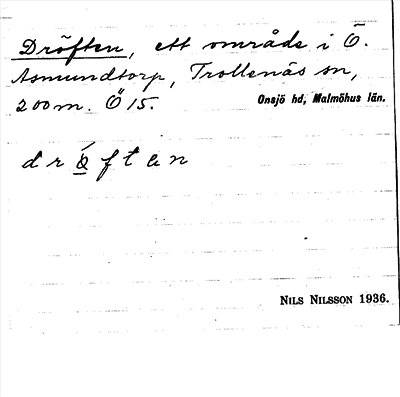 Dröften, ett område i Ö.
Asmundtorp, Trollenäs sn,
200 m. Ö 15.
Onsjö hd, Malmöhus län.
drö́ften
NILS NILSSON 1936.